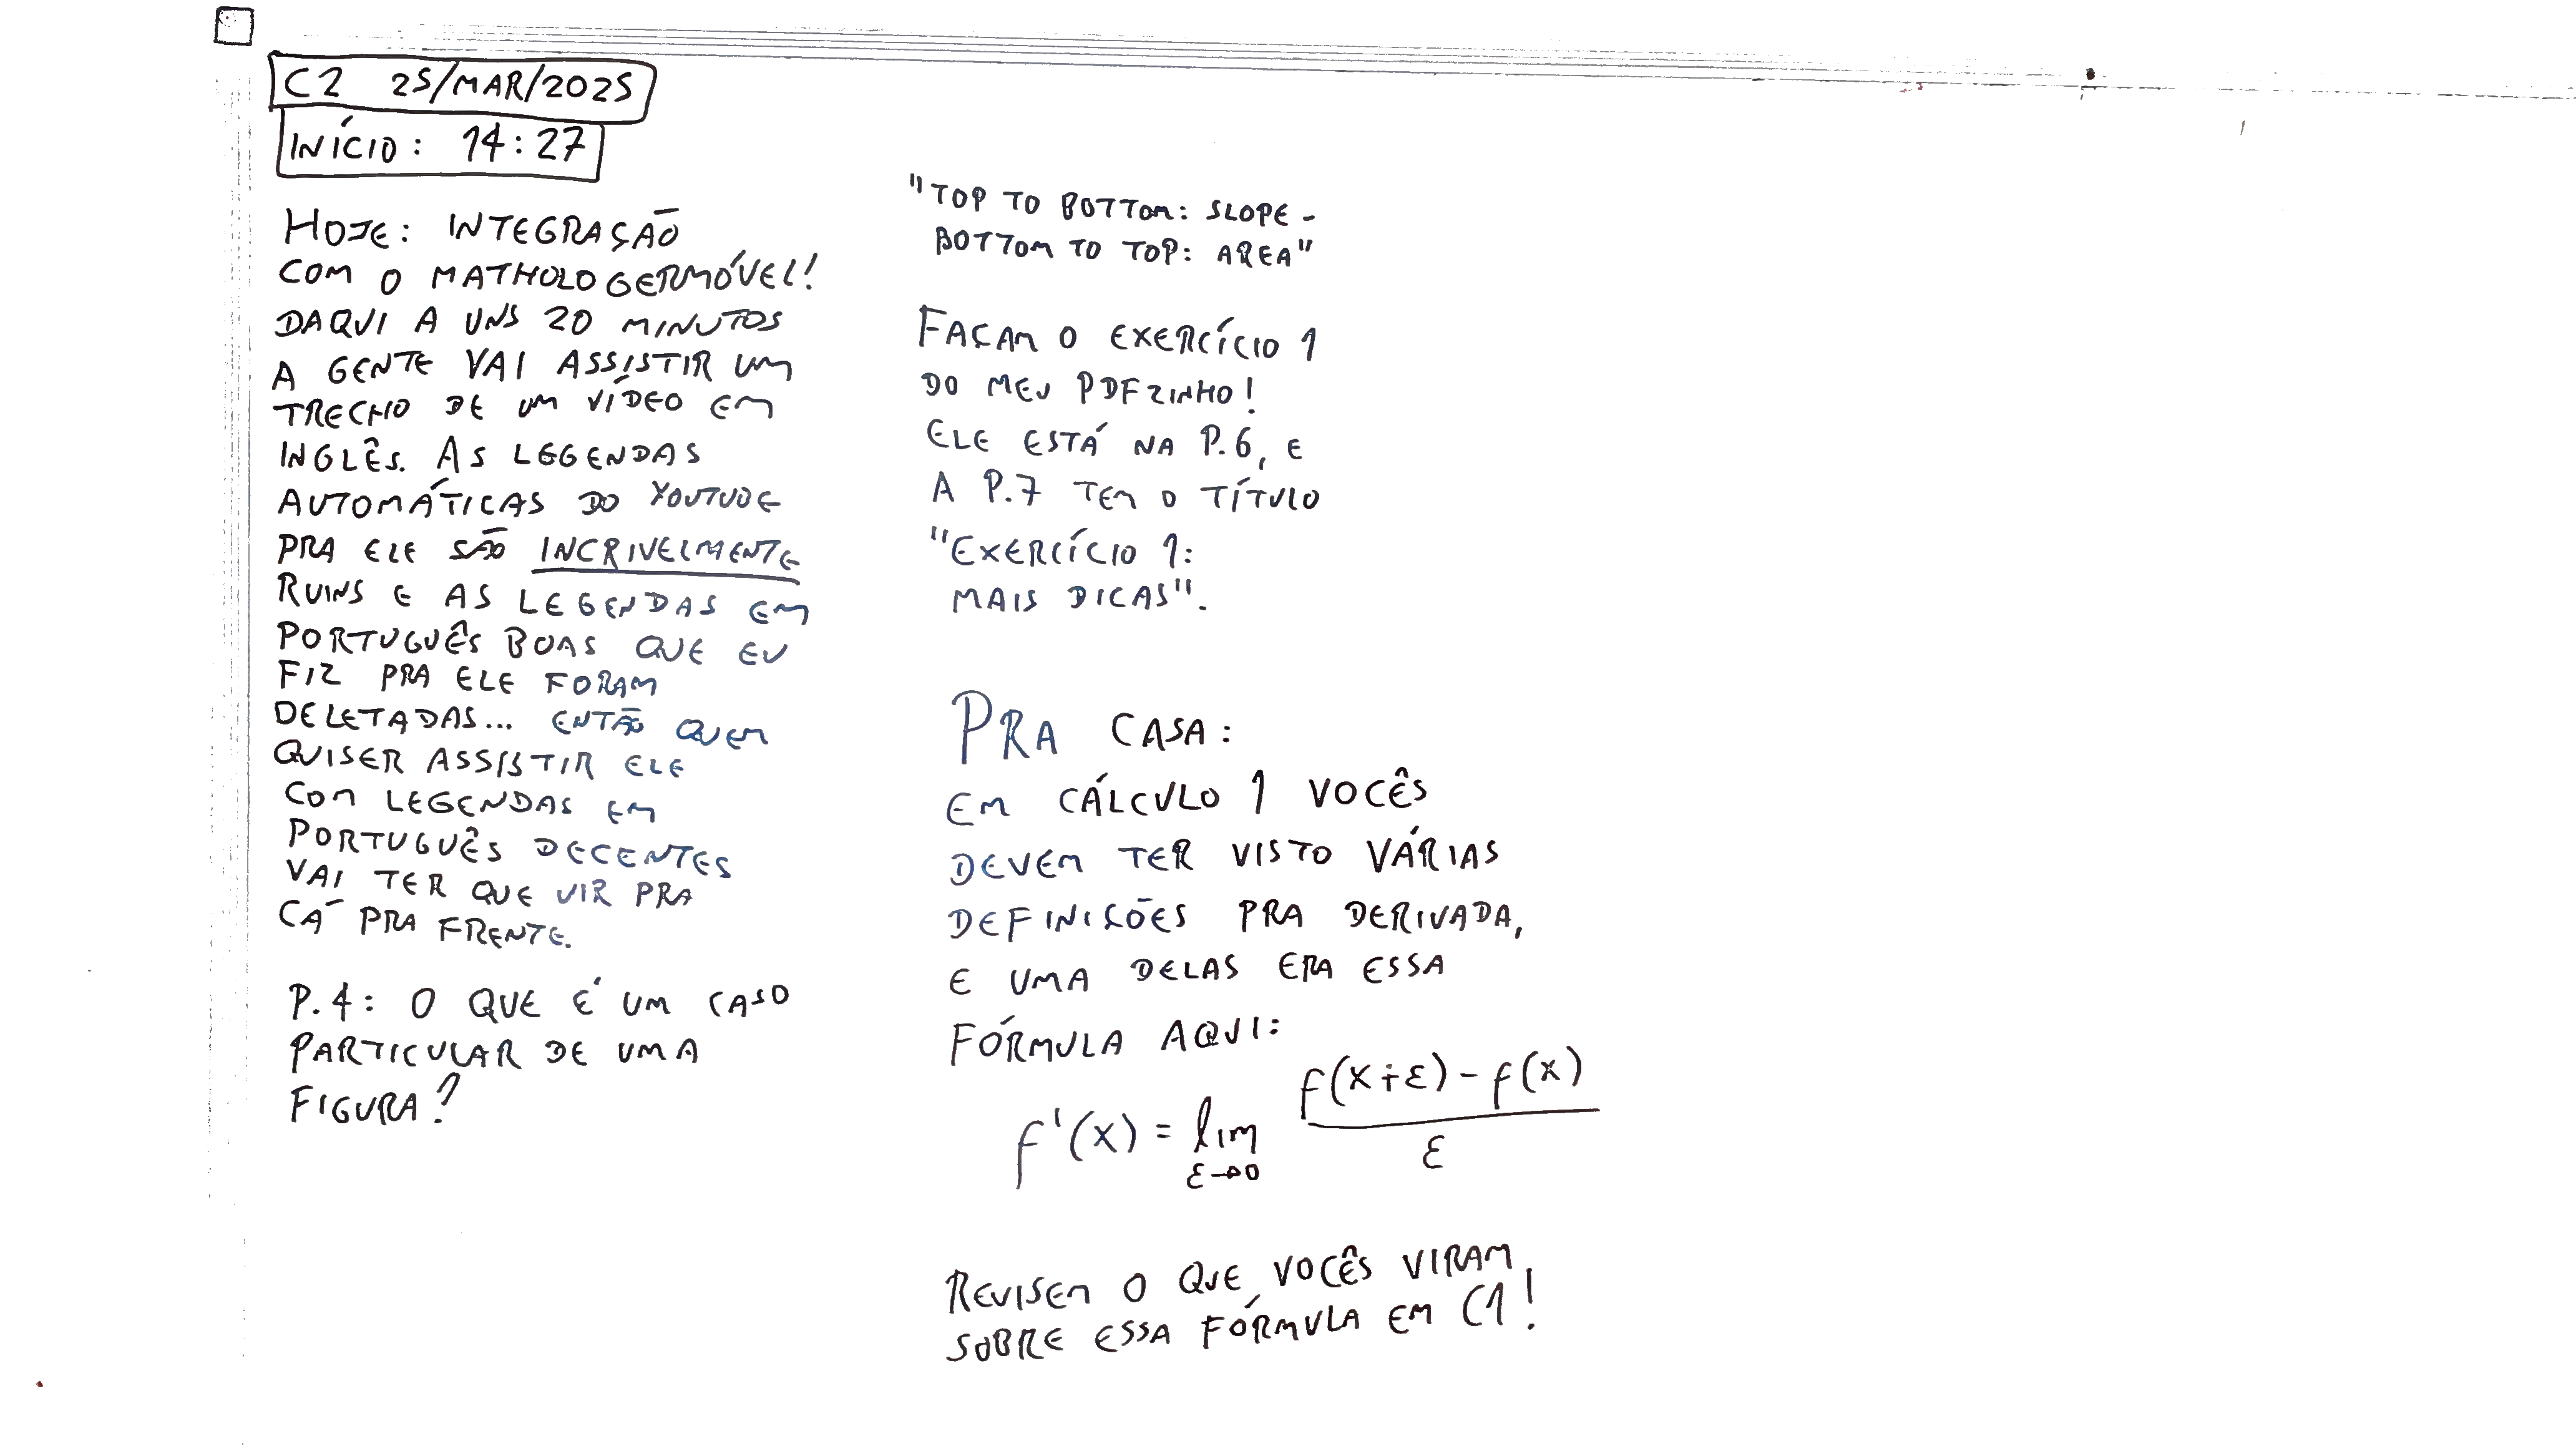 C2 25/MAR/2025
INÍCIO: 14:27
HOJE: INTEGRAÇÃO
COM O MATHOLOGERMÓVEL!
DAQUI A UNS 20 MINUTOS
A GENTE VAI ASSISTIR UM
TRECHO DE UM VÍDEO EM
INGLÊS. AS LEGENDAS
AUTOMÁTICAS DO YOUTUBE
PRA ELE SÃO INCRIVELMENTE
RUINS E AS LEGENDAS EM
PORTUGUÊS BOAS QUE EU
FIZ PRA ELE FORAM
DELETADAS... ENTÃO QUEM
QUISER ASSISTIR ELE
COM LEGENDAS EM
PORTUGUÊS DECENTES
VAI TER QUE VIR PRA
CÁ PRA FRENTE.
P.4: O QUE É UM CASO
PARTICULAR DE UMA
FIGURA?
"TOP TO BOTTOM: SLOPE -
BOTTOM TO TOP: AREA"
FAÇAM O EXERCÍCIO 1
DO MEU PDFZINHO!
ELE ESTÁ NA P.6, E
A P.7 TEM O TÍTULO
"EXERCÍCIO 1:
MAIS DICAS".
PRA CASA:
EM CÁLCULO 1 VOCÊS
DEVEM TER VISTO VÁRIAS
DEFINIÇÕES PRA DERIVADA,
E UMA DELAS ERA ESSA
FÓRMULA AQUI:
f'(x) = lim ε→0 (f(x+ε) - f(x)) / ε
REVISEM O QUE VOCÊS VIRAM
SOBRE ESSA FÓRMULA EM C1!